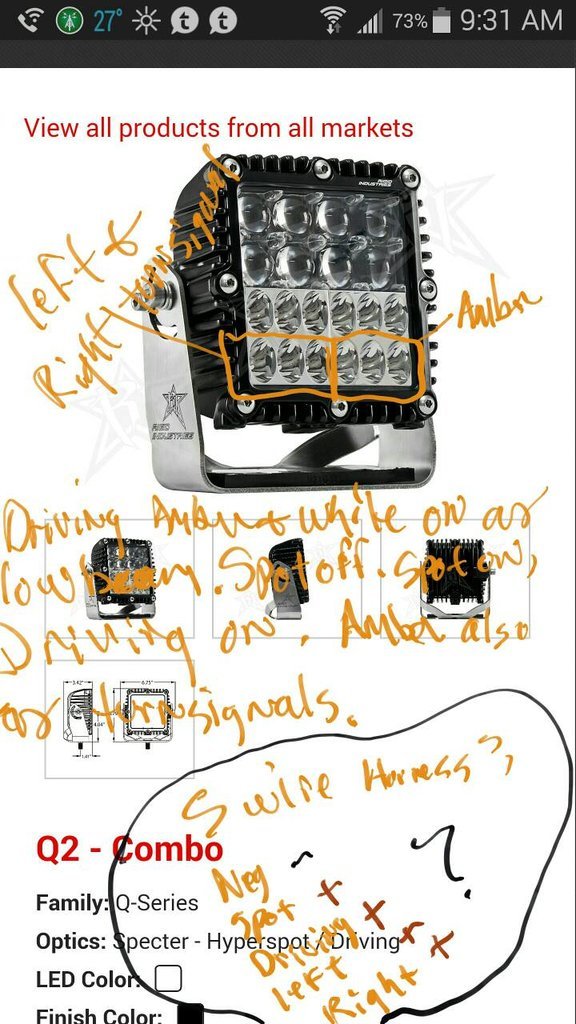 27° 73% 9:31 AM
View all products from all markets
RIGID
INDUSTRIES
left +
Right turnsignal
Amber
RIGID
INDUSTRIES
Driving Amber + white on as
low beam. Spot off. Spot on,
Driving on. Amber also
as turnsignals.
3.42" 6.75"
5 wire Harness?
?
Q2 - Combo
Neg -
Family: Q-Series
Spot +
Optics: Specter - Hyperspot / Driving
Driving +
LED Color:
left +
Right +
Finish Color: